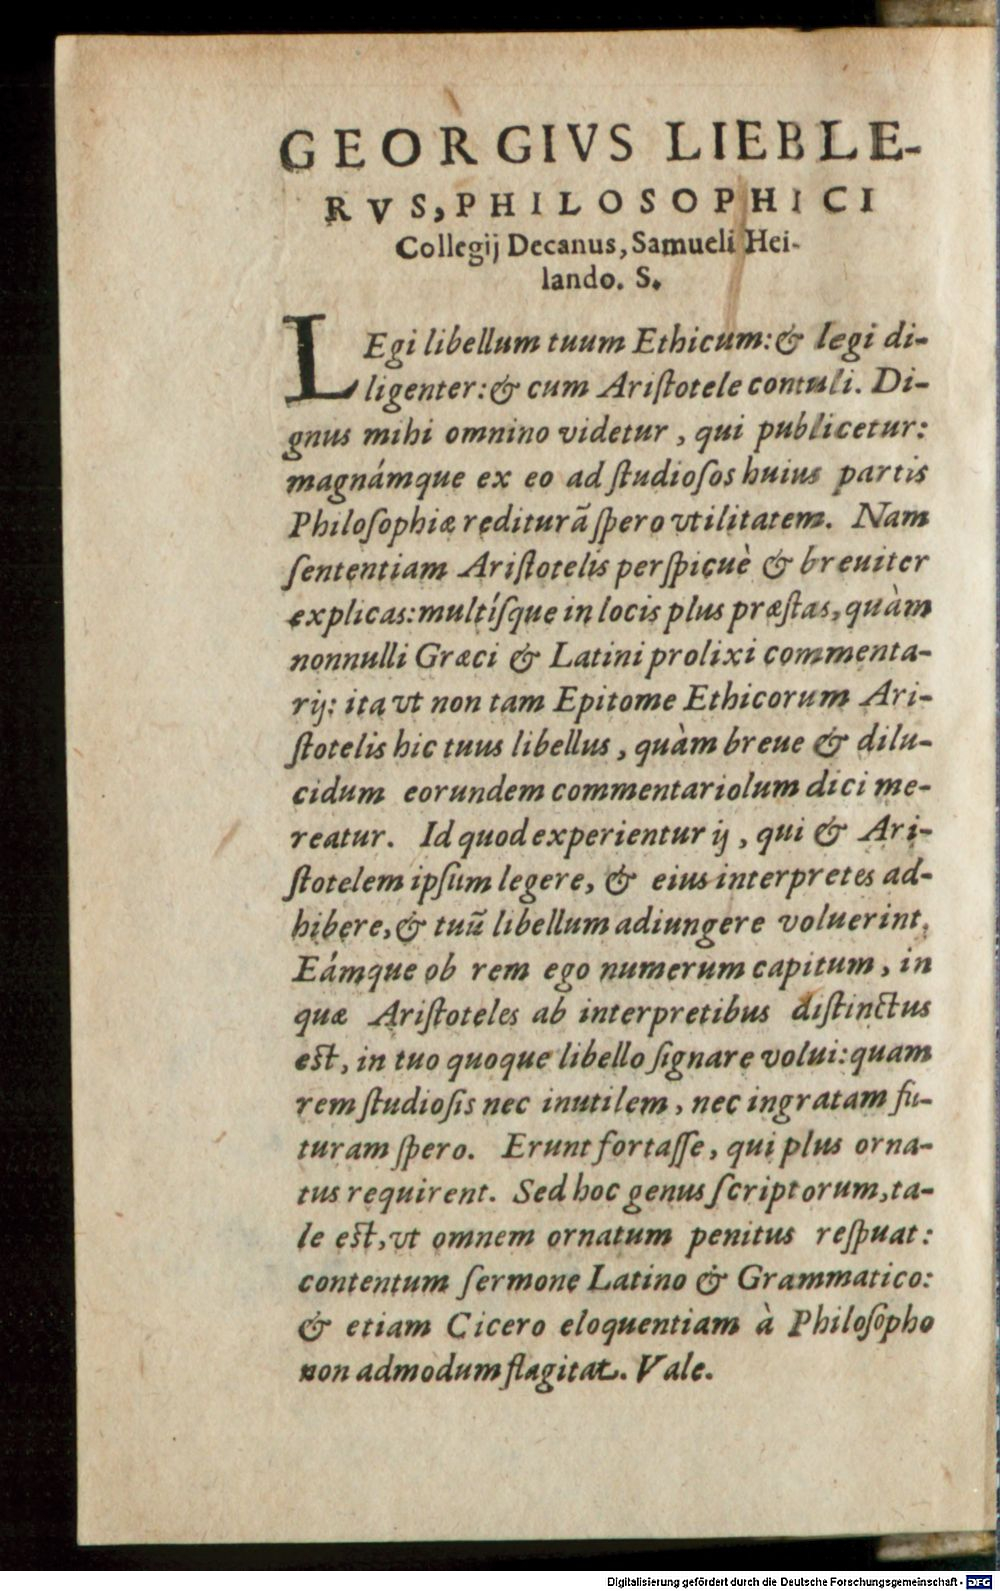 GEORGIVS LIEBLE-
RVS, PHILOSOPHICI
Collegij Decanus, Samueli Hei-
lando. S.
LEgi libellum tuum Ethicum: & legi di-
ligenter: & cum Ariſtotele contuli. Di-
gnus mihi omnino videtur, qui publicetur:
magnámque ex eo ad ſtudioſos huius partis
Philoſophiæ rediturã ſpero vtilitatem. Nam
ſententiam Ariſtotelis perſpicuè & breuiter
explicas: multíſque in locis plus præſtas, quàm
nonnulli Græci & Latini prolixi commenta-
rij: ita vt non tam Epitome Ethicorum Ari-
ſtotelis hic tuus libellus, quàm breue & dilu-
cidum eorundem commentariolum dici me-
reatur. Id quod experientur ij, qui & Ari-
ſtotelem ipſum legere, & eius interpretes ad-
hibere, & tuũ libellum adiungere voluerint.
Eámque ob rem ego numerum capitum, in
quæ Ariſtoteles ab interpretibus diſtinctus
eſt, in tuo quoque libello ſignare volui: quam
rem ſtudioſis nec inutilem, nec ingratam fu-
turam ſpero. Erunt fortaſſe, qui plus orna-
tus requirent. Sed hoc genus ſcriptorum, ta-
le eſt, vt omnem ornatum penitus reſpuat:
contentum ſermone Latino & Grammatico:
& etiam Cicero eloquentiam à Philoſopho
non admodum flagitat. Vale.
Digitalisierung gefördert durch die Deutsche Forschungsgemeinschaft - DFG